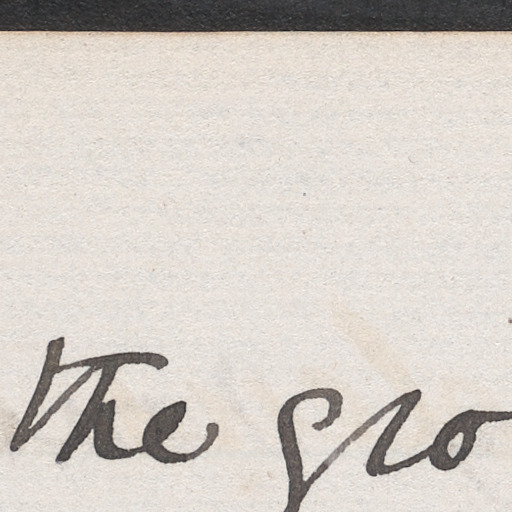 the gro